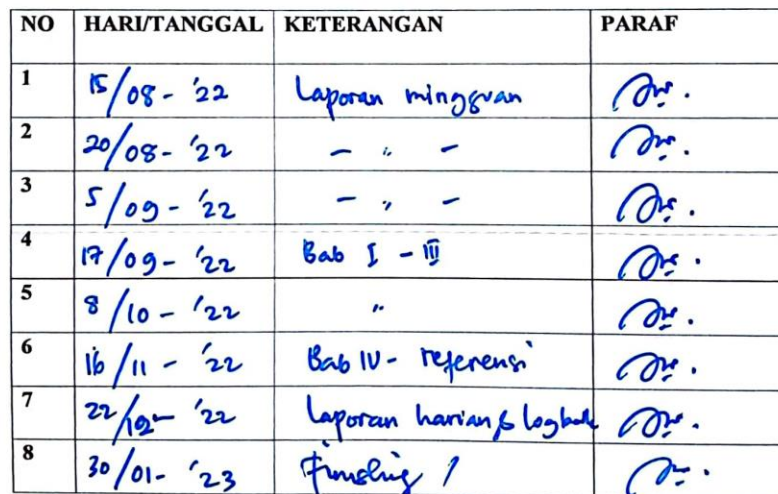 NO HARI/TANGGAL KETERANGAN PARAF
1 15/08 - '22 Laporan mingguan
2 20/08 - '22 - " -
3 5/09 - '22 - " -
4 17/09 - '22 Bab I - III
5 8/10 - '22 "
6 16/11 - '22 Bab IV - referensi
7 22/12 - '22 Laporan harian & logbook
8 30/01 - '23